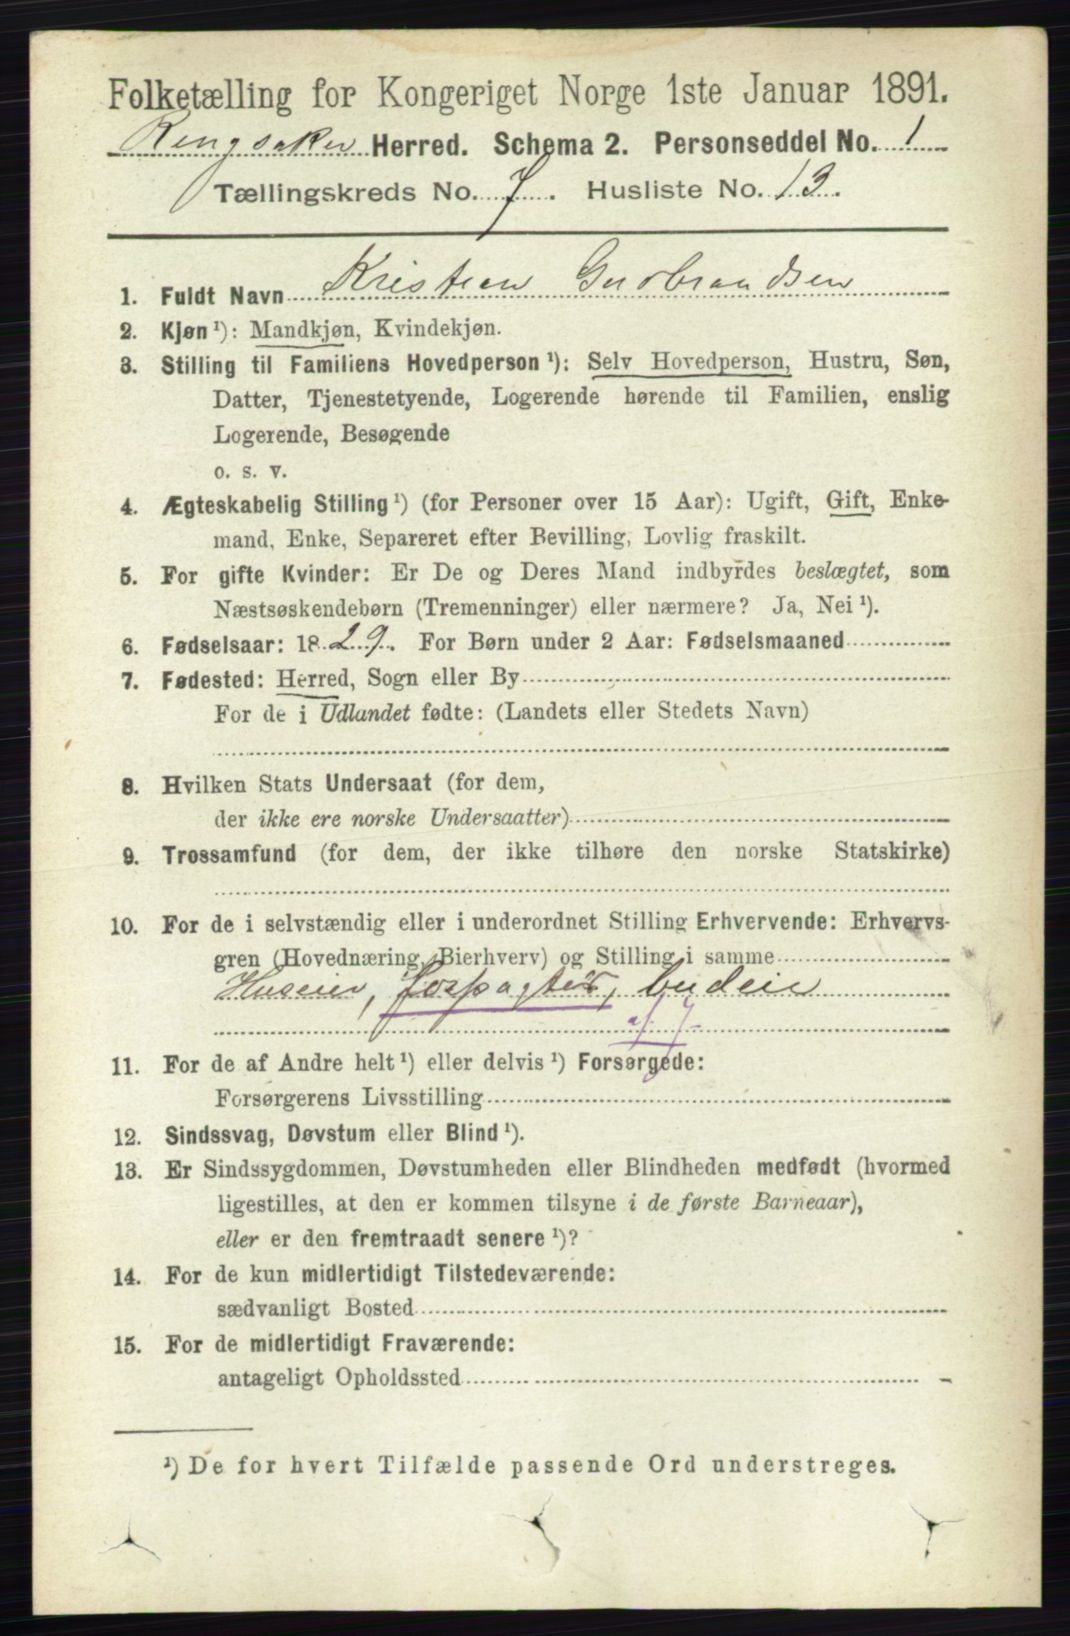 Folketælling for Kongeriget Norge 1ste Januar 1891.
Ringsaker Herred. Schema 2. Personseddel No. 1
Tællingskreds No. 7. Husliste No. 13.
1. Fuldt Navn Kristian Gudbrandsen
2. Kjøn ¹): Mandkjøn, Kvindekjøn.
3. Stilling til Familiens Hovedperson ¹): Selv Hovedperson, Hustru, Søn,
Datter, Tjenestetyende, Logerende hørende til Familien, enslig
Logerende, Besøgende
o. s. v.
4. Ægteskabelig Stilling ¹) (for Personer over 15 Aar): Ugift, Gift, Enke-
mand, Enke, Separeret efter Bevilling, Lovlig fraskilt.
5. For gifte Kvinder: Er De og Deres Mand indbyrdes beslægtet, som
Næstsøskendebørn (Tremenninger) eller nærmere? Ja, Nei ¹).
6. Fødselsaar: 1829. For Børn under 2 Aar: Fødselsmaaned
7. Fødested: Herred, Sogn eller By
For de i Udlandet fødte: (Landets eller Stedets Navn)
8. Hvilken Stats Undersaat (for dem,
der ikke ere norske Undersaatter)
9. Trossamfund (for dem, der ikke tilhøre den norske Statskirke)
10. For de i selvstændig eller i underordnet Stilling Erhvervende: Erhvervs-
gren (Hovednæring, Bierhverv) og Stilling i samme
Huseier, forpagter,
11. For de af Andre helt ¹) eller delvis ¹) Forsørgede:
Forsørgerens Livsstilling
12. Sindssvag, Døvstum eller Blind ¹).
13. Er Sindssygdommen, Døvstumheden eller Blindheden medfødt (hvormed
ligestilles, at den er kommen tilsyne i de første Barneaar),
eller er den fremtraadt senere ¹)?
14. For de kun midlertidigt Tilstedeværende:
sædvanligt Bosted
15. For de midlertidigt Fraværende:
antageligt Opholdssted
¹) De for hvert Tilfælde passende Ord understreges.